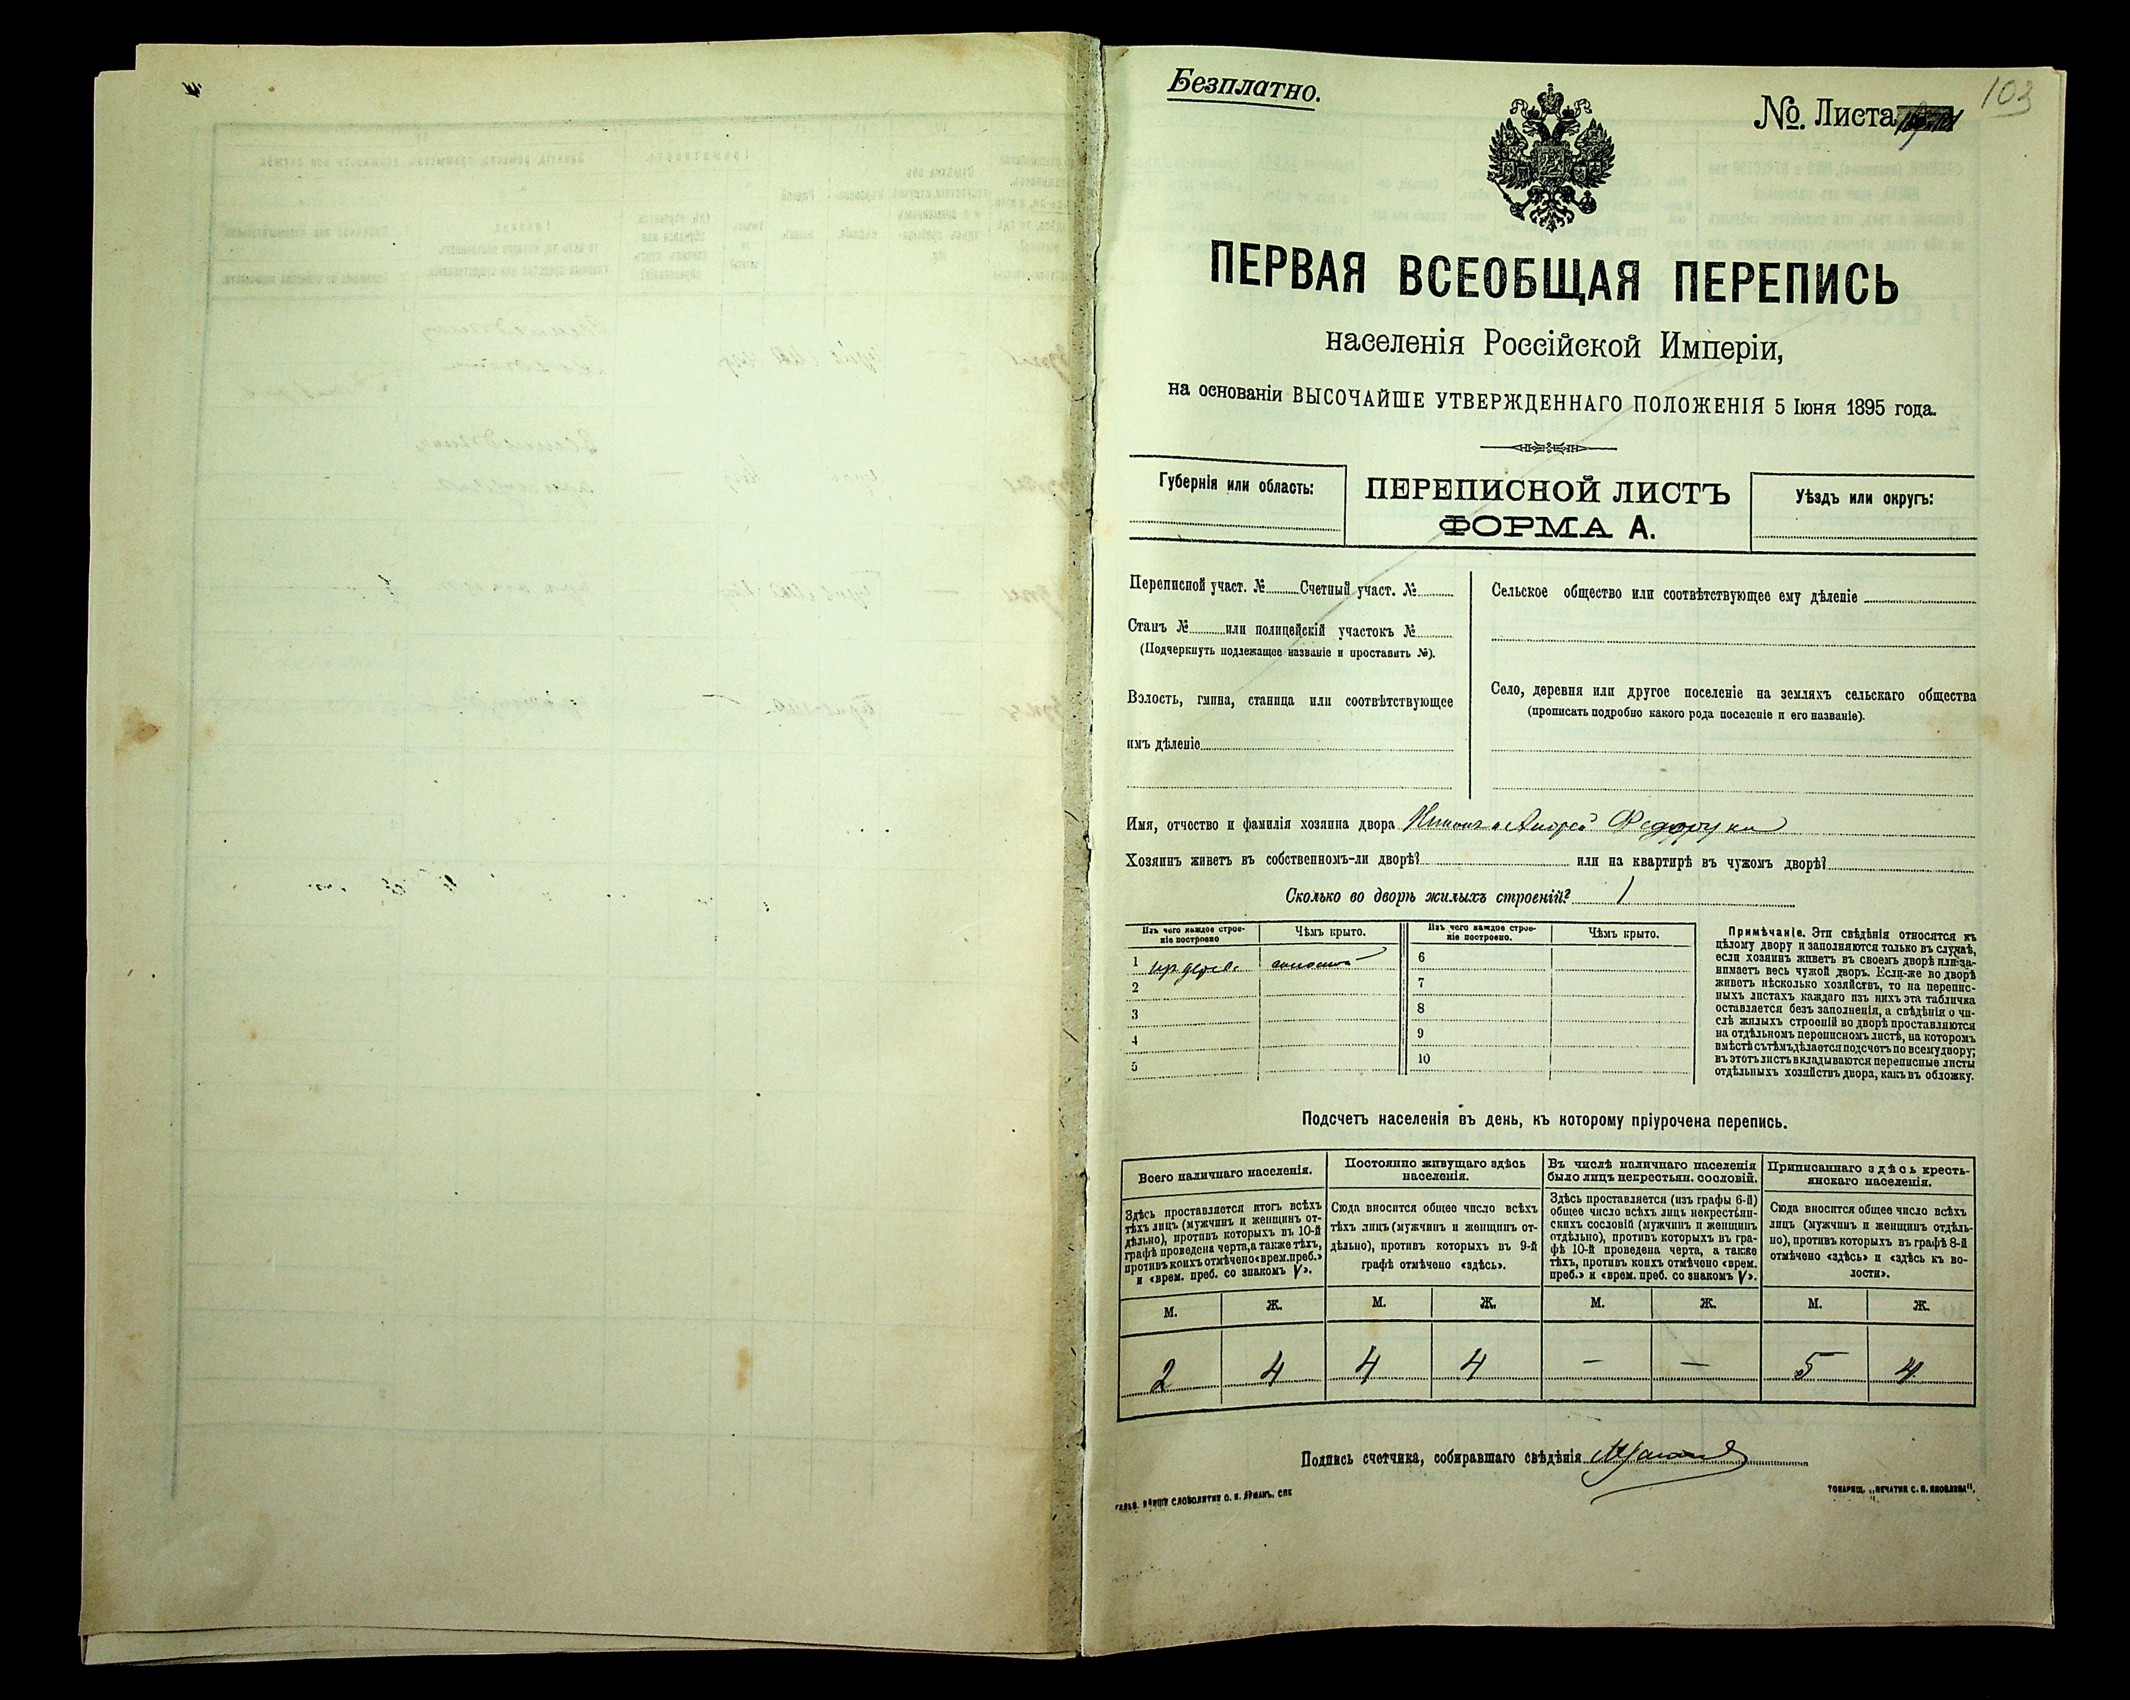 Безплатно.
№. Листа
103
ПЕРВАЯ ВСЕОБЩАЯ ПЕРЕПИСЬ
населенія Россійской Имперіи,
на основаніи ВЫСОЧАЙШЕ УТВЕРЖДЕННАГО ПОЛОЖЕНІЯ 5 Іюня 1895 года.
Губернія или область:
ПЕРЕПИСНОЙ ЛИСТЪ
ФОРМА А.
Уѣздъ или округъ:
Переписной участ. № Счетный участ. №
Станъ № или полицейскій участокъ №
(Подчеркнуть подлежащее названіе и проставить №).
Волость, гмина, станица или соотвѣтствующее
имъ дѣленіе
Сельское общество или соотвѣтствующее ему дѣленіе
Село, деревня или другое поселеніе на земляхъ сельскаго общества
(прописать подробно какого рода поселеніе и его названіе).
Имя, отчество и фамилія хозяина двора и Андрей Федоруки
Хозяинъ живетъ въ собственномъ-ли дворѣ? или на квартирѣ въ чужомъ дворѣ?
Сколько во дворѣ жилыхъ строеній? 1
Изъ чего каждое строе-
ніе построено
Чѣмъ крыто.
Изъ чего каждое строе-
ніе построено.
Чѣмъ крыто.
1 изъ дерев. соломой
2
3
4
5
6
7
8
9
10
Примѣчаніе. Эти свѣдѣнія относятся къ
цѣлому двору и заполняются только въ случаѣ,
если хозяинъ живетъ въ своемъ дворѣ или за-
нимаетъ весь чужой дворъ. Если-же во дворѣ
живетъ нѣсколько хозяйствъ, то на перепис-
ныхъ листахъ каждаго изъ нихъ эта табличка
оставляется безъ заполненія, а свѣдѣнія о чи-
слѣ жилыхъ строеній во дворѣ проставляются
на отдѣльномъ переписномъ листѣ, на которомъ
вмѣстѣ съ тѣмъ дѣлается подсчетъ по всему двору;
въ этотъ листъ вкладываются переписные листы
отдѣльныхъ хозяйствъ двора, какъ въ обложку.
Подсчетъ населенія въ день, къ которому пріурочена перепись.
Всего наличнаго населенія.
Здѣсь проставляется итогъ всѣхъ
тѣхъ лицъ (мужчинъ и женщинъ от-
дѣльно), противъ которыхъ въ 10-й
графѣ проведена черта, а также тѣхъ,
противъ коихъ отмѣчено «врем. преб.»
и «врем. преб. со знакомъ V».
Постоянно живущаго здѣсь
населенія.
Сюда вносится общее число всѣхъ
тѣхъ лицъ (мужчинъ и женщинъ от-
дѣльно), противъ которыхъ въ 9-й
графѣ отмѣчено «здѣсь».
Въ числѣ наличнаго населенія
было лицъ некрестьян. сословій.
Здѣсь проставляется (изъ графы 6-й)
общее число всѣхъ лицъ некрестьян-
скихъ сословій (мужчинъ и женщинъ
отдѣльно), противъ которыхъ въ гра-
фѣ 10-й проведена черта, а также
тѣхъ, противъ коихъ отмѣчено «врем.
преб.» и «врем. преб. со знакомъ V».
Приписаннаго здѣсь кресть-
янскаго населенія.
Сюда вносится общее число всѣхъ
лицъ (мужчинъ и женщинъ отдѣль-
но), противъ которыхъ въ графѣ 8-й
отмѣчено «здѣсь» и «здѣсь къ во-
лости».
М. Ж. М. Ж. М. Ж. М. Ж.
2 4 4 4 — — 5 4
Подпись счетчика, собиравшаго свѣдѣнія
ТОВАРИЩ. „ПЕЧАТНЯ С. П. ЯКОВЛЕВА".